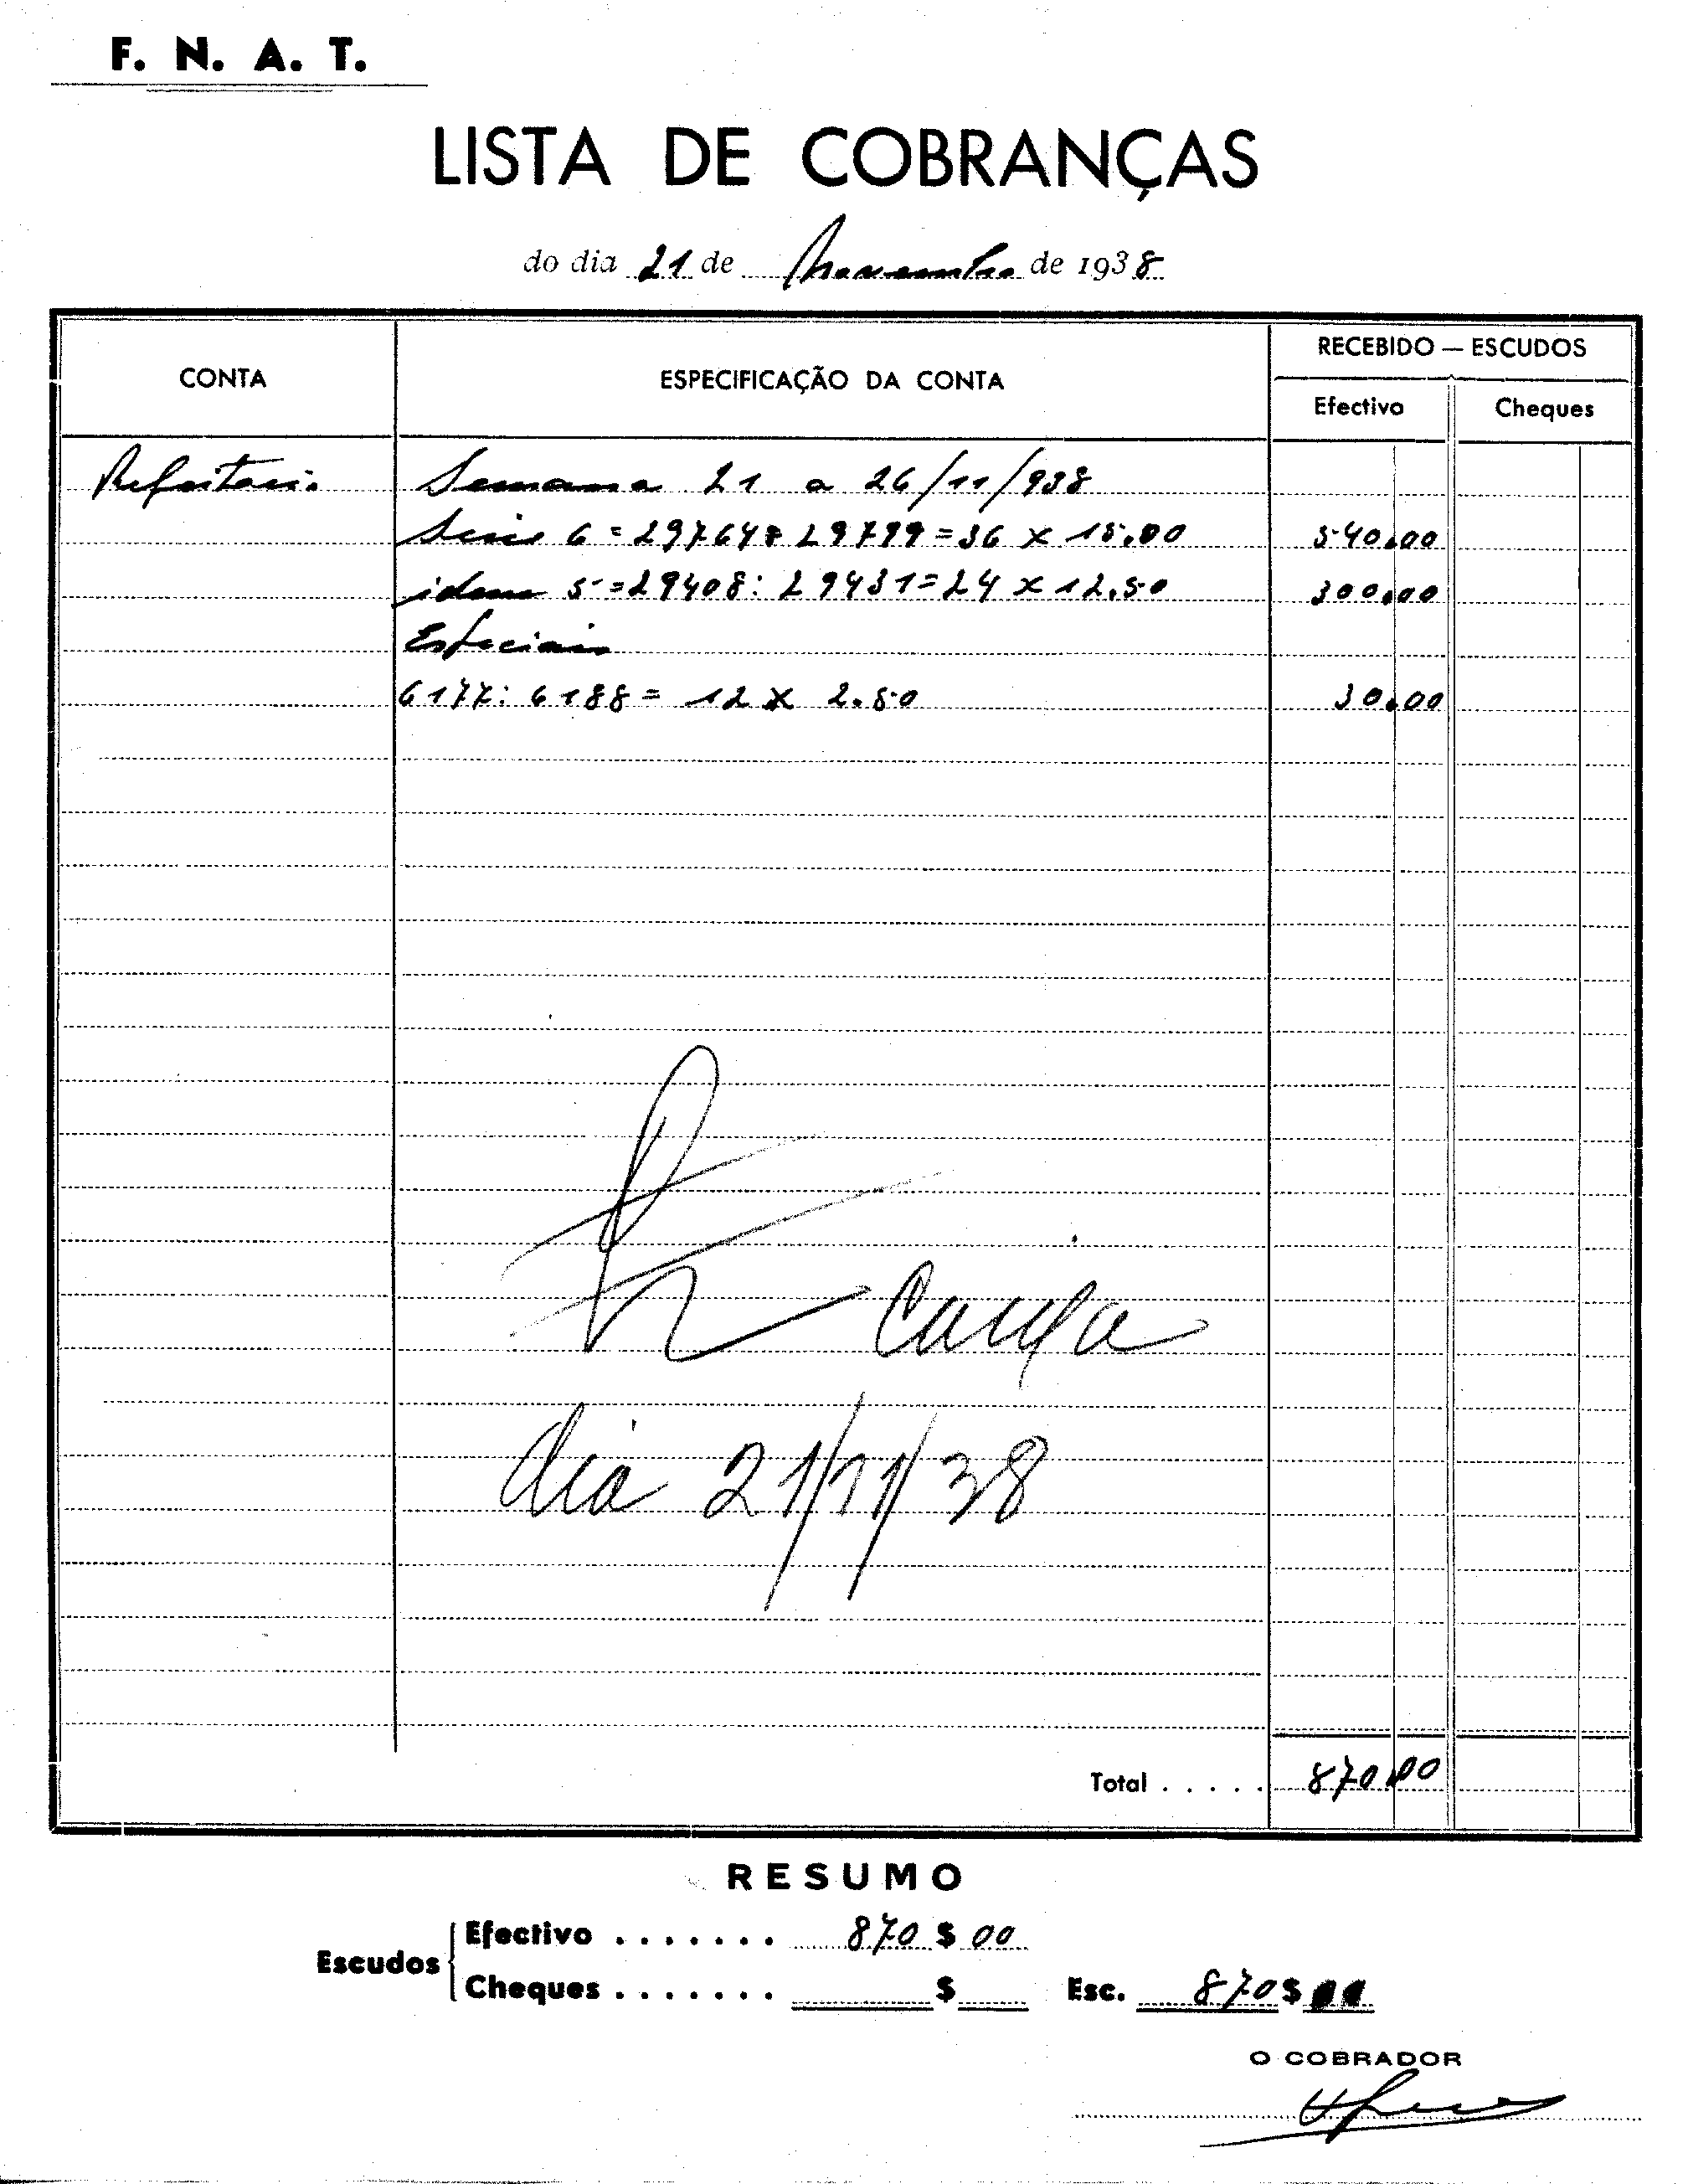 F. N. A. T.
LISTA DE COBRANÇAS
do dia 21 de Novembro de 1938
CONTA
ESPECIFICAÇÃO DA CONTA
RECEBIDO — ESCUDOS
Efectivo
Cheques
Refeitorio Semana 21 a 26/11/938
Serie 6 = 29764 29799 = 36 x 15.00 540.00
idem 5 = 29408: 29431 = 24 x 12.50 300.00
Especiais
6177: 6188 = 12 x 2.50 30.00
Caixa
dia 21/11/38
Total . . . . . 870.00
RESUMO
Escudos
Efectivo . . . . . . . 870 $ 00
Cheques . . . . . . . $ Esc. 870 $ 00
O COBRADOR